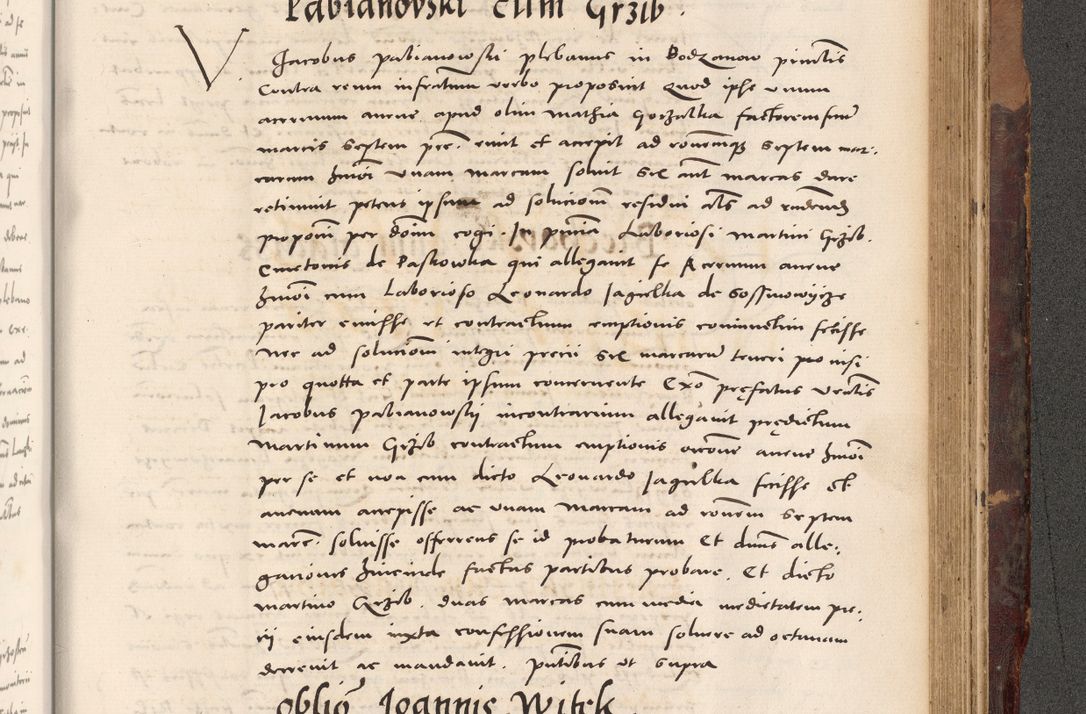 Pabianovski cum Grzib.
V.
Jacobus pabianowski plebanus in Bodzanow primtis
Contra reum infratum verbo proposuit Quod ipse unum
acervum avene apud olim Mathia Gorzalka factorem suum
marcis septem pre. emit et accepit ad rationemque septem mar.
carum huiusmodi unam marcam soluit sex autem marcas dare
retinuit petens ipsum ad solucionem residui als ad reddendum
proponi per dominum cogi. In presentia Laboriosi Martini Grzib.
Cmetonis de Paskowka qui allegauit se Acervum avene
huiusmodi cum Laborioso Leonardo Jagielka de
pariter emisse et contractum emptionis coniunctim fecisse
nec ad solucionem integri precii sex marcarum teneri pro nisi
pro quotta et parte ipsum concernente Ex quo prefatus
Jacobus pabianowskij incontrarium allegavit predictum
Martinum Grzib contractum emptionis avene huiusmodi
per se et non cum dicto Leonardo Jagielka fecisse et
avenam accepisse ac unam marcam ad rationem septem
marc. soluisse offerrens se id probaturum Et dominus alle,
gationes huiusmodi factas partibus probare. Et dicto
Martino Grzib. duas marcas cum media medietatem pre,
cii eiusdem iuxta confessionem suam soluere ad octavam
decrevit ac mandavit. presentibus ut supra
oblio Joannis Witek.